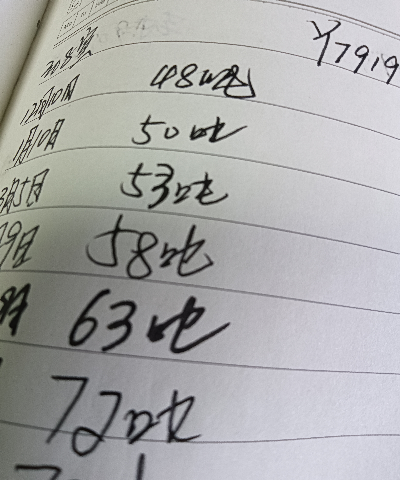 Y7919
12月10日 48吨
1月10日 50吨
3月5日 53吨
9日 58吨
63吨
72吨